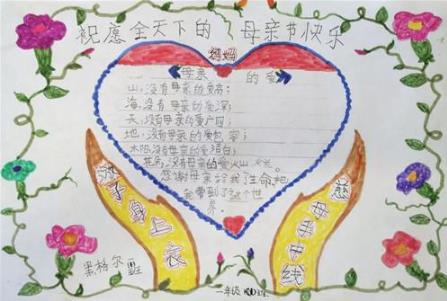 祝愿全天下的母亲节快乐
妈妈
母亲的爱
山,没有母亲的爱高;
海,没有母亲的爱深;
天,没有母亲的爱广阔;
地,没有母亲的爱包容;
太阳没有母亲的爱
花朵,没有母亲的爱
感谢母亲给我了生命,把
我带到了这个世
界。
慈母手中线
游子身上衣
黑格尔
一年级